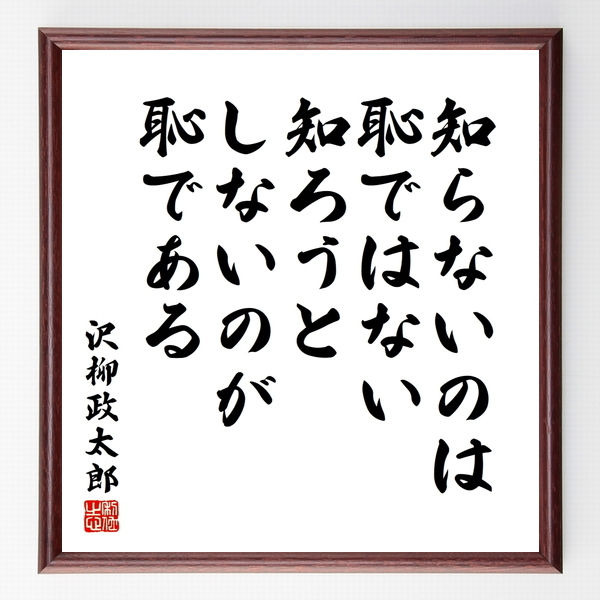 知らないのは
恥ではない
知ろうと
しないのが
恥である
沢柳政太郎